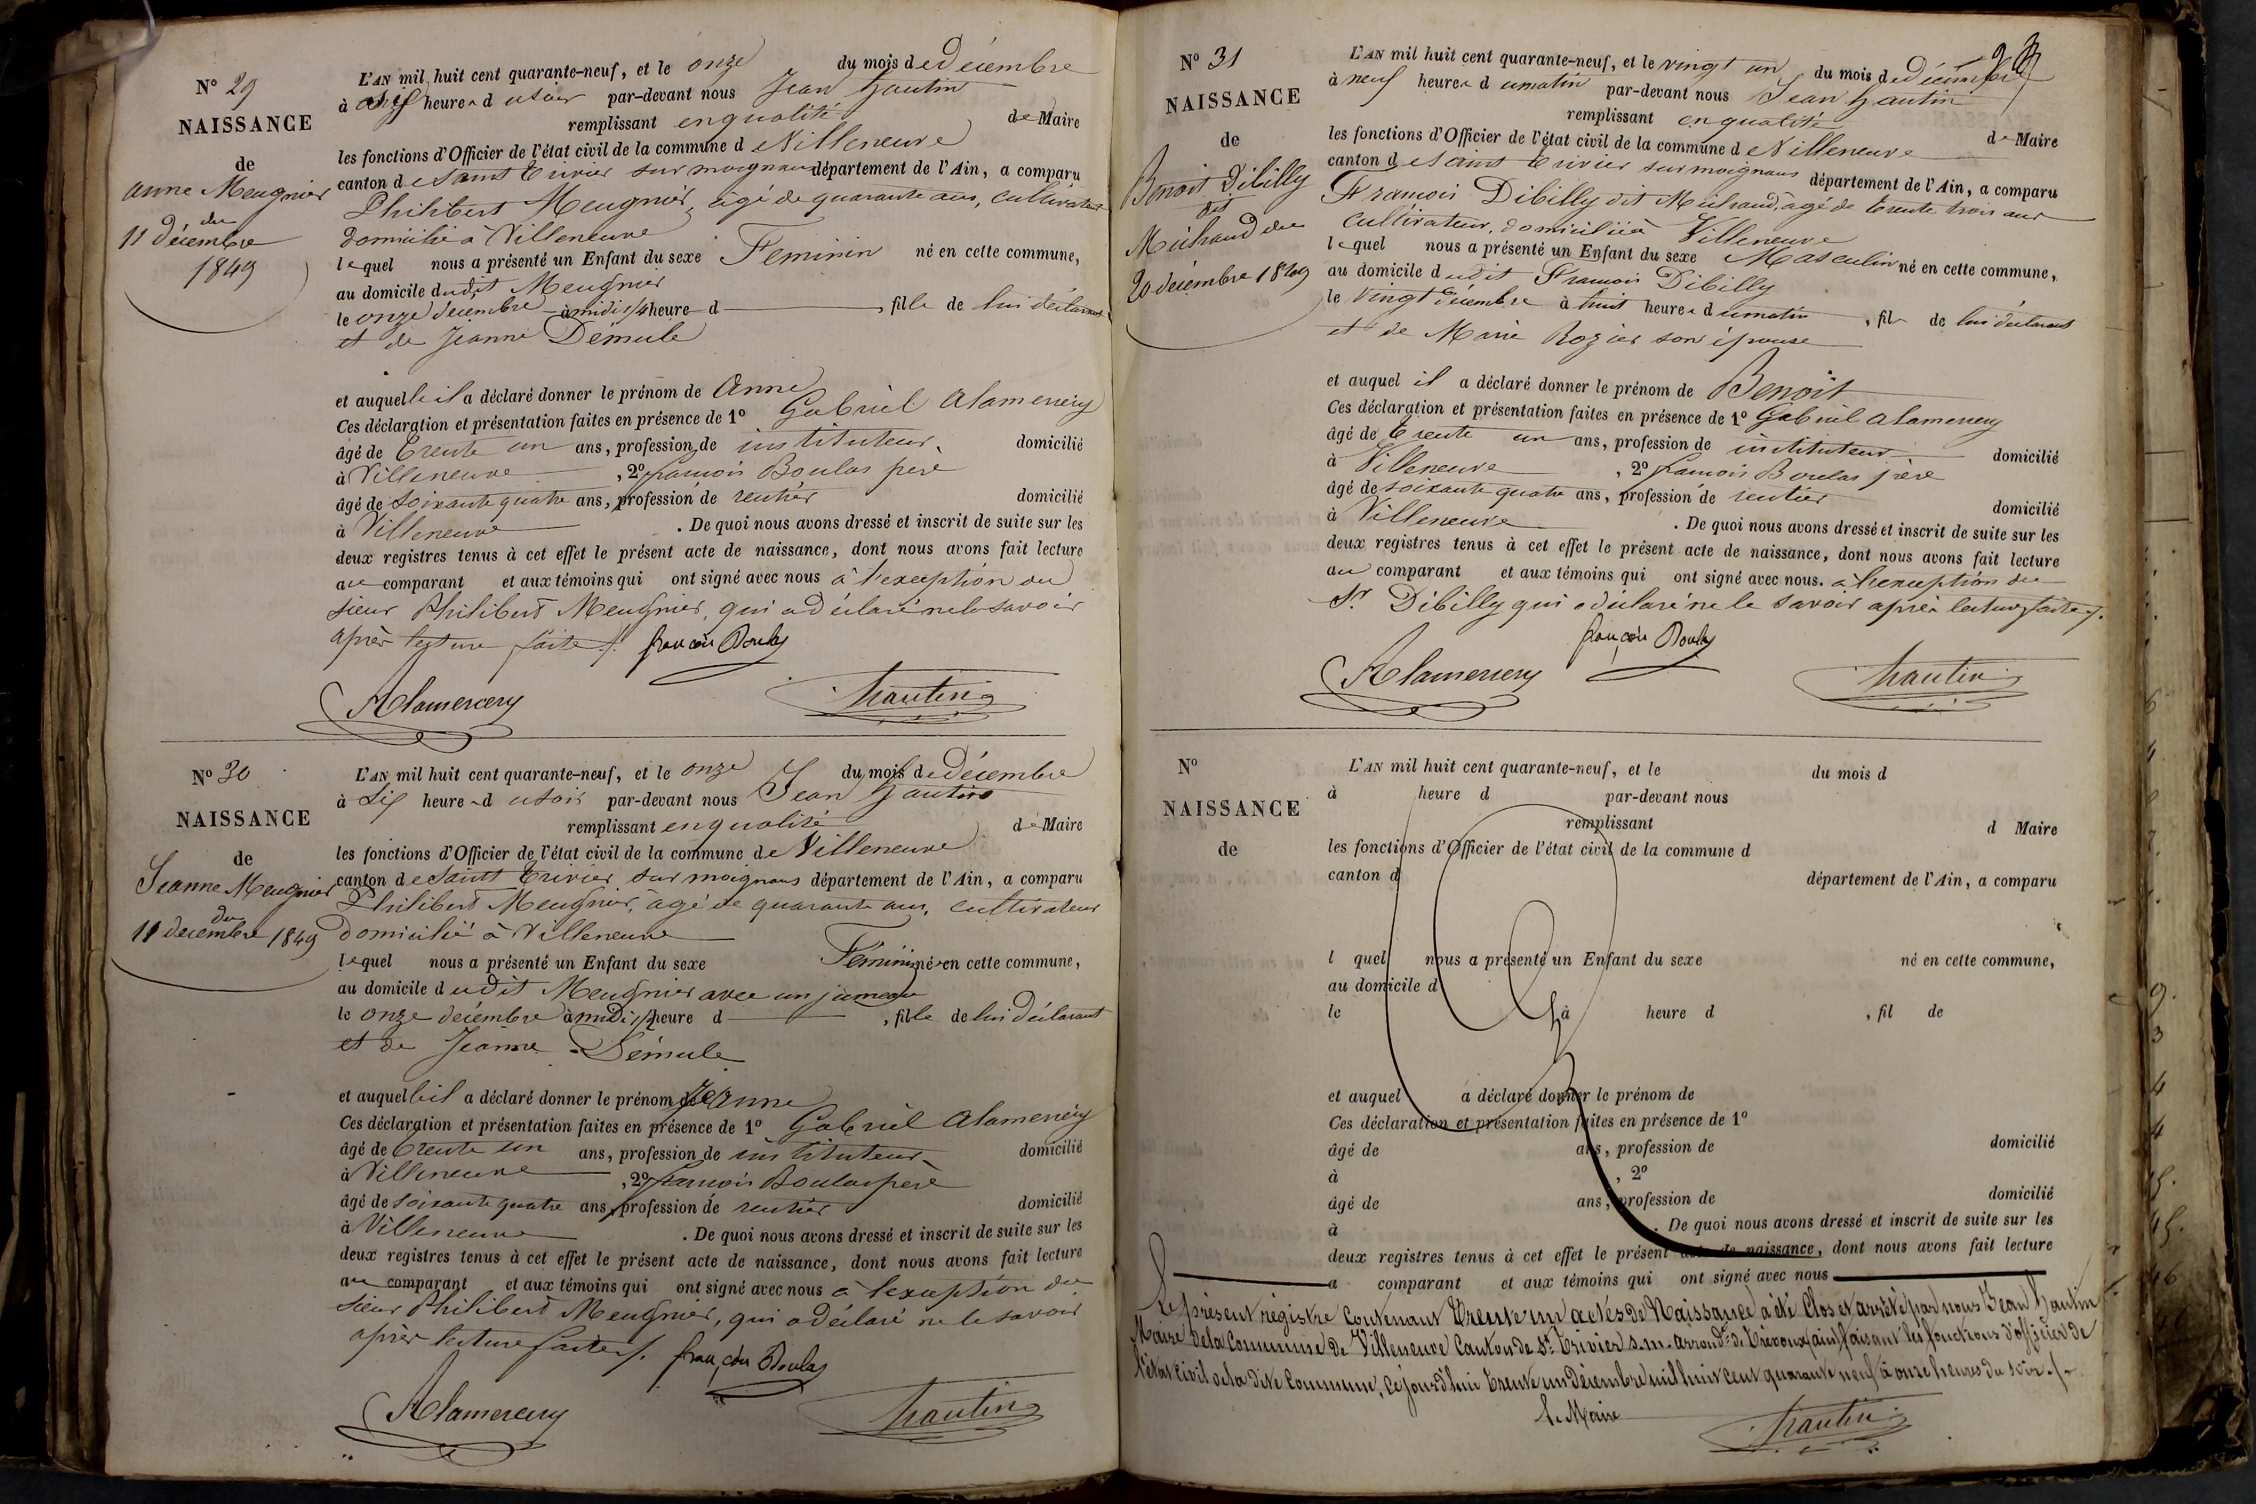 N° 29
NAISSANCE
de
Anne Meugnier
du
11 décembre
1849
L'AN mil huit cent quarante-neuf, et le onze du mois de Décembre
à six heures du soir par-devant nous Jean hautin
remplissant en qualité de Maire
les fonctions d'Officier de l'état civil de la commune de Villeneuve
canton de Saint Trivier sur moignans département de l'Ain, a comparu
Philibert Meugnier, âgé de quarante ans, cultivateur
domicilié à Villeneuve
lequel nous a présenté un Enfant du sexe Feminin né en cette commune,
au domicile dudit Meugnier
le onze décembre à midi 1/4 heure d , fille de lui déclarant
et de Jeanne Démule
et auquelle il a déclaré donner le prénom de Anne
Ces déclaration et présentation faites en présence de 1° Gabriel Alamercery
âgé de trente un ans, profession de instituteur domicilié
à Villeneuve , 2° françois Boulas père
âgé de soixante quatre ans, profession de rentier domicilié
à Villeneuve . De quoi nous avons dressé et inscrit de suite sur les
deux registres tenus à cet effet le présent acte de naissance, dont nous avons fait lecture
au comparant et aux témoins qui ont signé avec nous à l'exception du
sieur Philibert Meugnier, qui a déclaré ne le savoir
après lecture faite /.
françois Boulas
Alamercery hautin
N° 30
NAISSANCE
de
Jeanne Meugnier
du
11 décembre 1849
L'AN mil huit cent quarante-neuf, et le onze du mois de Décembre
à six heures du soir par-devant nous Jean hautin
remplissant en qualité de Maire
les fonctions d'Officier de l'état civil de la commune de Villeneuve
canton de Saint Trivier sur moignans département de l'Ain, a comparu
Philibert Meugnier, âgé de quarante ans, cultivateur
domicilié à Villeneuve
lequel nous a présenté un Enfant du sexe Féminin né en cette commune,
au domicile dudit Meugnier avec un jumeau
le onze décembre à midi 1/2 heure d , fille de lui déclarant
et de Jeanne Démule
et auquelle il a déclaré donner le prénom de Jeanne
Ces déclaration et présentation faites en présence de 1° Gabriel Alamercery
âgé de trente un ans, profession de instituteur domicilié
à Villeneuve , 2° françois Boulas père
âgé de soixante quatre ans, profession de rentier domicilié
à Villeneuve . De quoi nous avons dressé et inscrit de suite sur les
deux registres tenus à cet effet le présent acte de naissance, dont nous avons fait lecture
au comparant et aux témoins qui ont signé avec nous à l'exception du
sieur Philibert Meugnier, qui a déclaré ne le savoir
après lecture faite /.
françois Boulas
Alamercery hautin
N° 31
NAISSANCE
de
Benoît Dibilly
dit
Michaud du
20 décembre 1849
L'AN mil huit cent quarante-neuf, et le vingt un du mois de Décembre
à neuf heures du matin par-devant nous Jean hautin
remplissant en qualité de Maire
les fonctions d'Officier de l'état civil de la commune de Villeneuve
canton de Saint Trivier sur moignans département de l'Ain, a comparu
François Dibilly dit Michaud, âgé de trente trois ans
cultivateur, domicilié à Villeneuve
lequel nous a présenté un Enfant du sexe Masculin né en cette commune,
au domicile dudit François Dibilly
le vingt décembre à huit heures du matin , fils de lui déclarant
et de Marie Rozier son épouse
et auquel il a déclaré donner le prénom de Benoît
Ces déclaration et présentation faites en présence de 1° Gabriel Alamercery
âgé de trente un ans, profession de instituteur domicilié
à Villeneuve , 2° françois Boulas père
âgé de soixante quatre ans, profession de rentier domicilié
à Villeneuve . De quoi nous avons dressé et inscrit de suite sur les
deux registres tenus à cet effet le présent acte de naissance, dont nous avons fait lecture
au comparant et aux témoins qui ont signé avec nous. à l'exception du
Sr. Dibilly qui a déclaré ne le savoir après lecture faite /.
françois Boulas
Alamercery hautin
N°
NAISSANCE
de
L'AN mil huit cent quarante-neuf, et le du mois d
à heure d par-devant nous
remplissant d Maire
les fonctions d'Officier de l'état civil de la commune d
canton d département de l'Ain, a comparu
l quel nous a présenté un Enfant du sexe né en cette commune,
au domicile d
le à heure d , fil de
et auquel a déclaré donner le prénom de
Ces déclaration et présentation faites en présence de 1°
âgé de ans, profession de domicilié
à , 2°
âgé de ans, profession de domicilié
à . De quoi nous avons dressé et inscrit de suite sur les
deux registres tenus à cet effet le présent acte de naissance, dont nous avons fait lecture
a comparant et aux témoins qui ont signé avec nous
Le présent régistre contenant trente un actes de Naissance a été clos et arrêté par nous Jean hautin
Maire de la Commune de Villeneuve Canton de St. Trivier s.m. arrond.t de Trévoux (ain) faisant les fonctions d'officier de
l'état civil de la dite Commune, cejourd'hui trente un décembre mil huit cent quarante neuf à onze heures du soir ./.
Le Maire
hautin